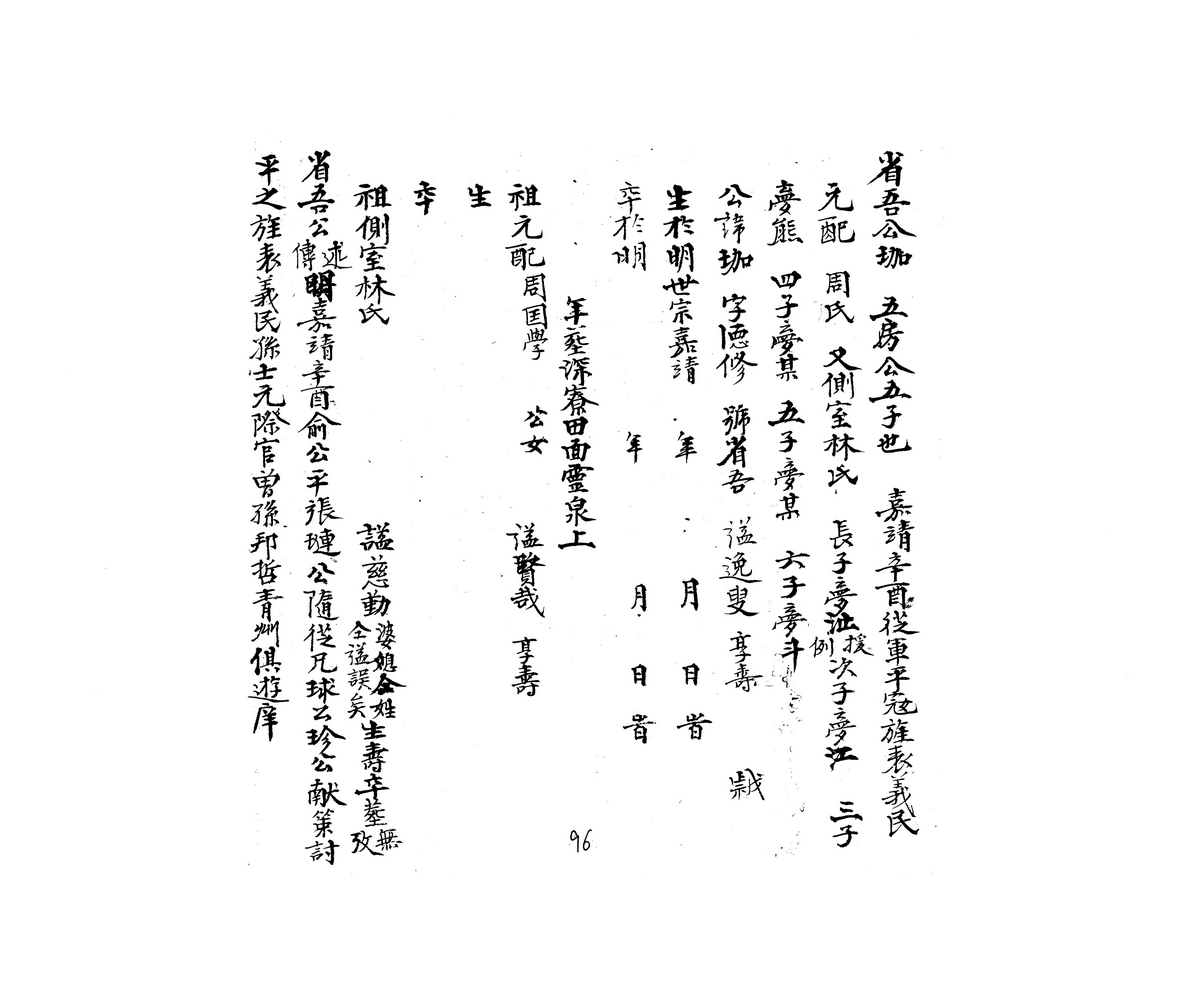 省吾公珈 五房公五子也 嘉靖辛酉從軍平寇旌表義民
元配 周氏 又側室林氏 長子夢沚援例 次子夢江 三子
夢熊 四子夢某 五子夢某 六子夢斗
公諱珈 字德修 號省吾 謚逸叟 享壽 歲
生於明世宗嘉靖 年 月 日 旹
卒於明 年 月 日 旹
年塟深寮田面靈泉上
祖元配周国學 公女 謚賢哉 享壽
生
卒
祖側室林氏 謚慈勤 婆媳仝姓仝謚誤矣 生壽卒塟無攷
省吾公述傳 明嘉靖辛酉俞公平張璉公隨從兄球公珍公献策討
平之旌表義民孫士元際官曾孫邦哲青州俱遊庠
96